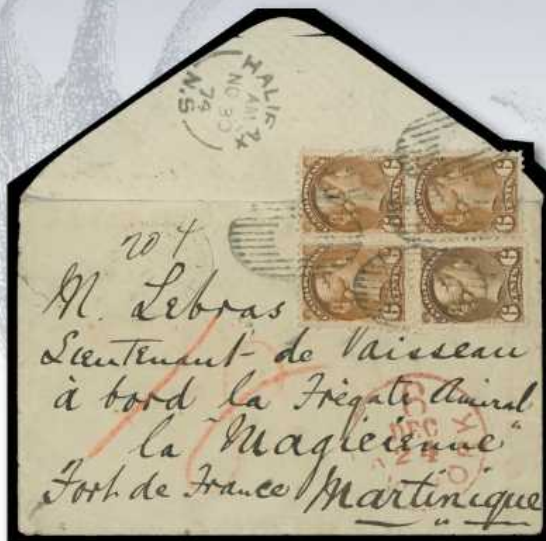 HALIFAX
AM
NO 30
74
N.S.
204
M. Lebras
Lieutenant de Vaisseau
à bord la Frégate Amiral
la "Magicienne"
Fort de France Martinique
DEC
24